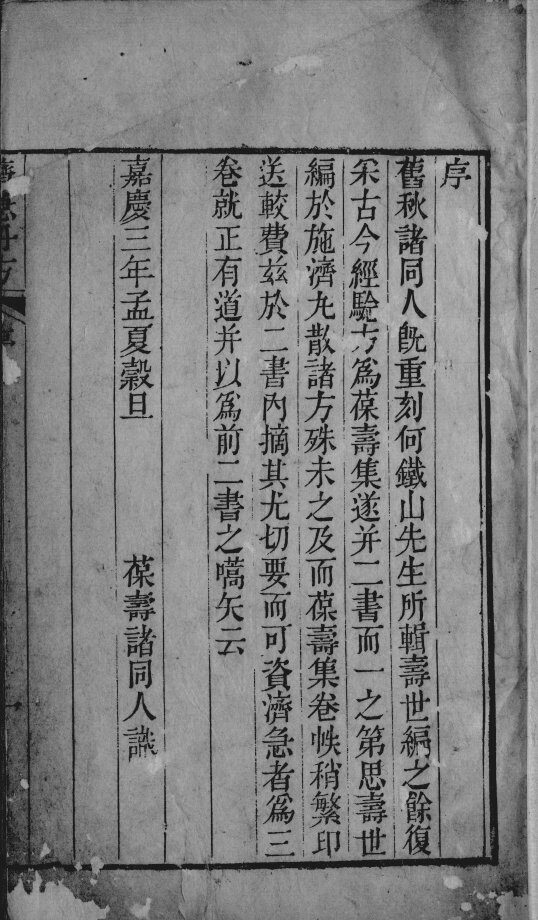 序
舊秋諸同人旣重刻何鐵山先生所輯壽世編之餘復
采古今經驗方爲葆壽集遂并二書而一之第思壽世
編於施濟丸散諸方殊未之及而葆壽集卷帙稍繁印
送較費茲於二書內摘其尤切要而可資濟急者爲三
卷就正有道并以爲前二書之嚆矢云
嘉慶三年孟夏穀旦　　葆壽諸同人識